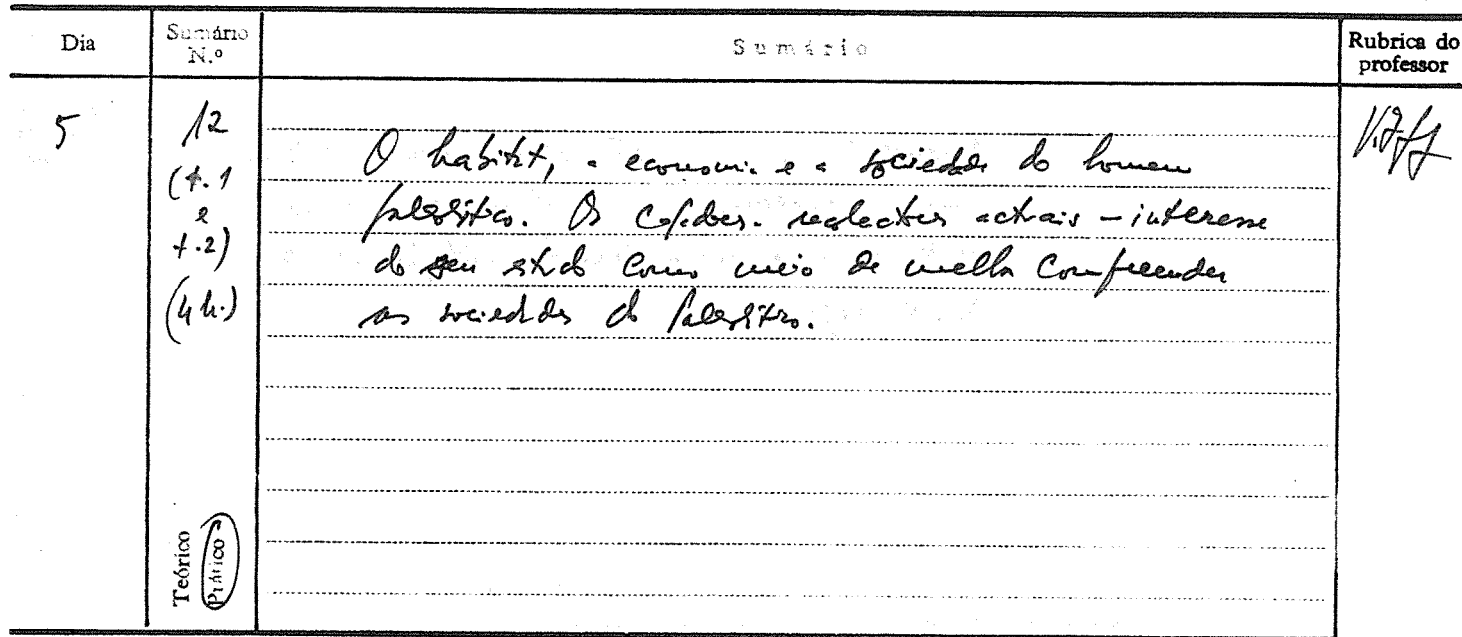 Dia
Sumário N.º
Sumário
Rubrica do professor
5
12
(t.1
e
t.2)
(4 h.)
O habitat, a economia e a sociedade do homem
paleolítico. Os caçadores-recolectores actuais – interesse
do seu estudo como meio de melhor compreender
as sociedades do Paleolítico.
Teórico
Prático